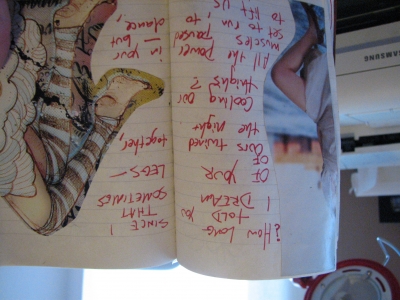 ¿How long since I
told you that
I dream sometimes
of your legs —
of
ours twined together,
the night
cooling our
thighs?
All the power in your
muscles paused — but
set to run, to dance,
to lift us
SAMSUNG